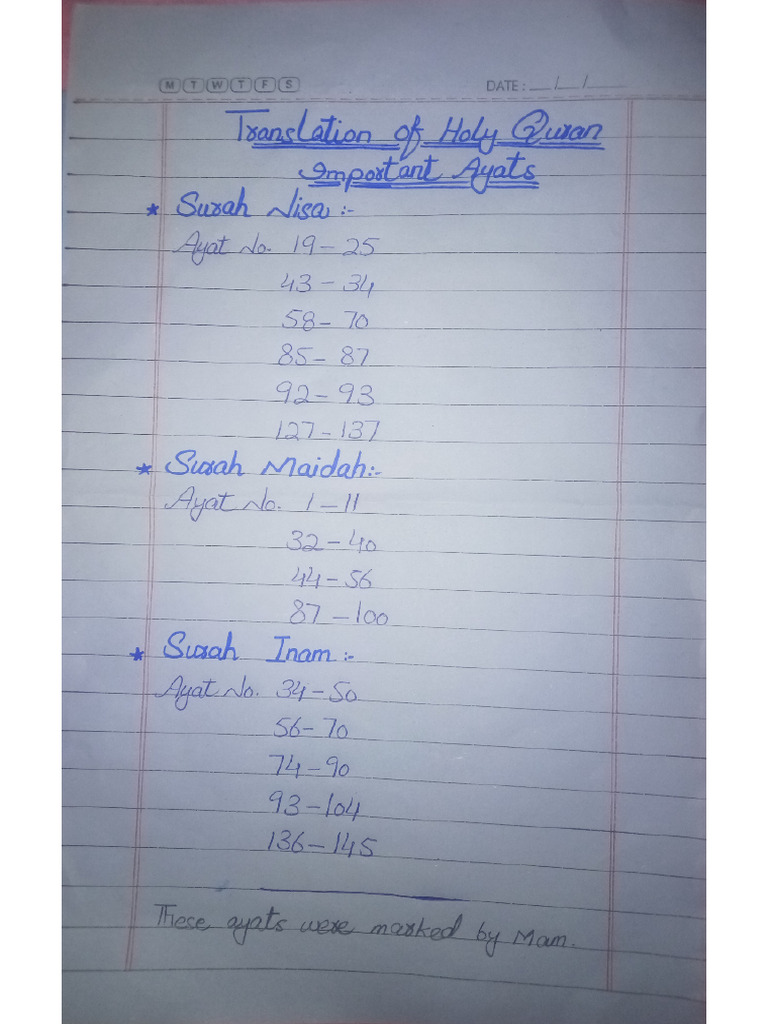 M T W T F S
DATE: __/__/____
Translation of Holy Quran
Important Ayats
* Surah Nisa:-
Ayat No. 19-25
43-34
58-70
85-87
92-93
127-137
* Surah Maidah:-
Ayat No. 1-11
32-40
44-56
87-100
* Surah Inam:-
Ayat No. 34-50
56-70
74-90
93-104
136-145
These ayats were marked by Mam.